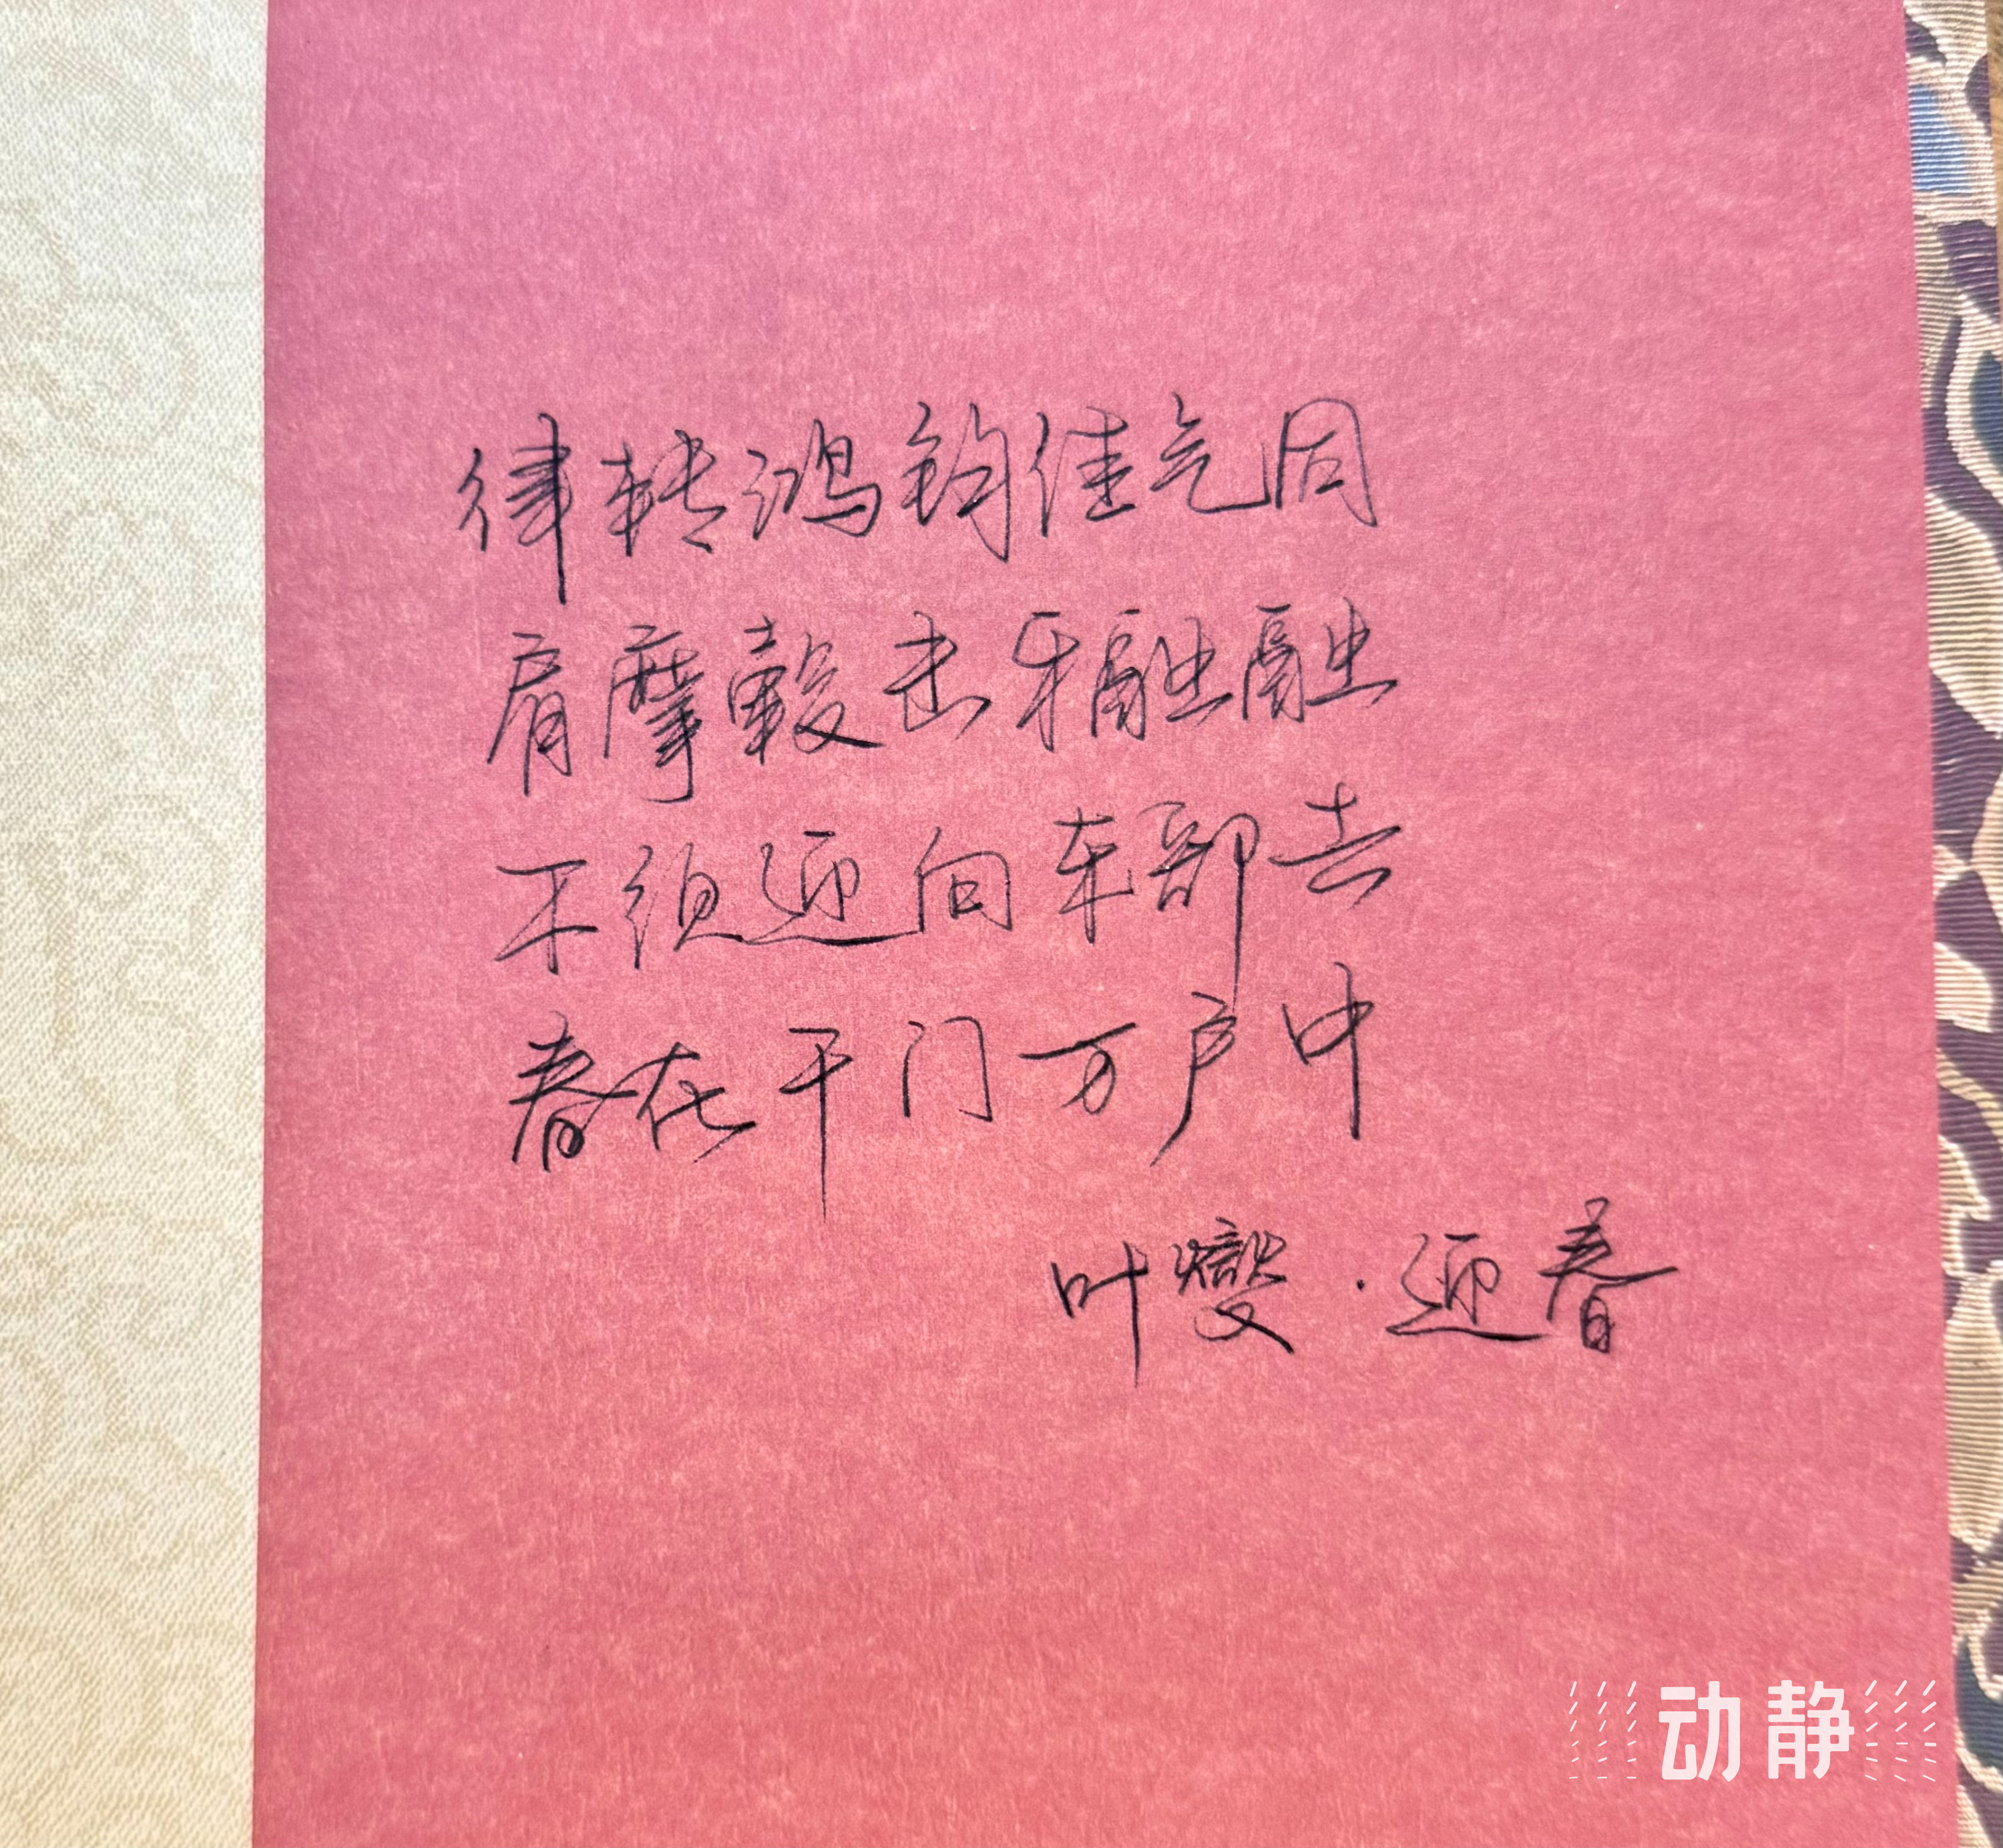 律转鸿钧佳气同
肩摩毂击乐融融
不须迎向东郊去
春在千门万户中
叶燮·迎春
动静